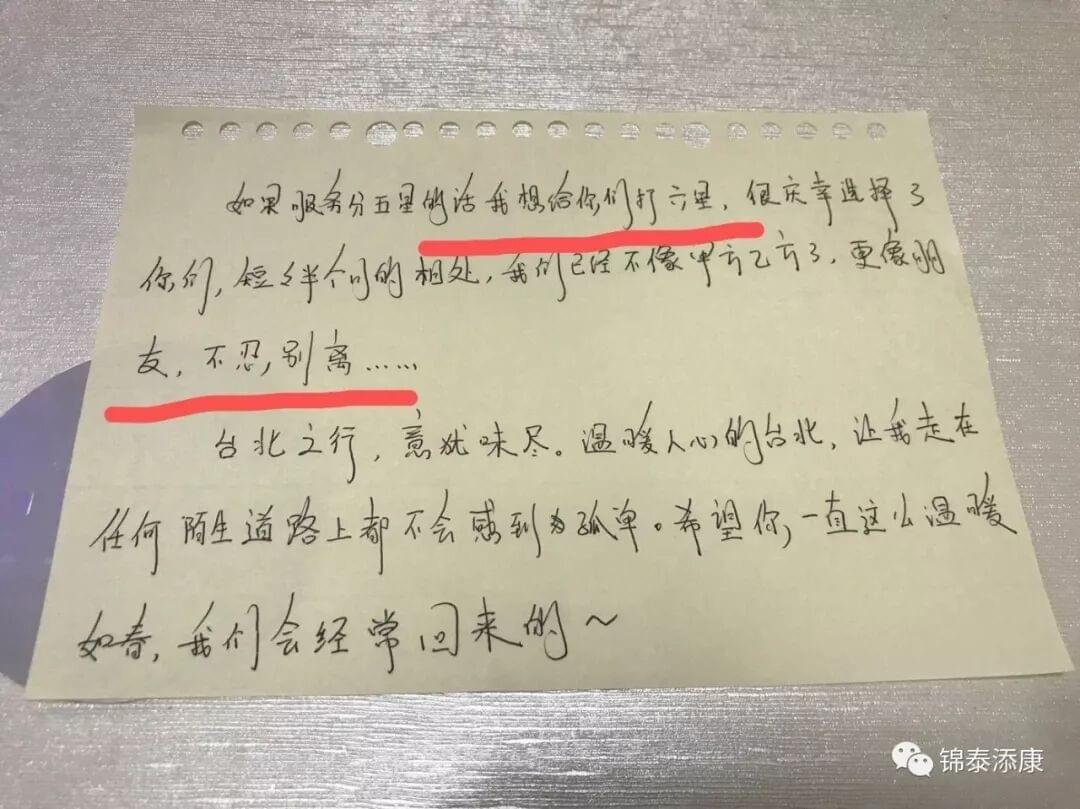 如果服务分五星的话我想给你们打六星，很庆幸选择了
你们，短々半个月的相处，我们已经不像甲方乙方了，更像朋
友，不忍别离……
台北之行，意犹味尽。温暖人心的台北，让我走在
任何陌生道路上都不会感到为孤单。希望你，一直这么温暖
如春，我们会经常回来的～
锦泰添康